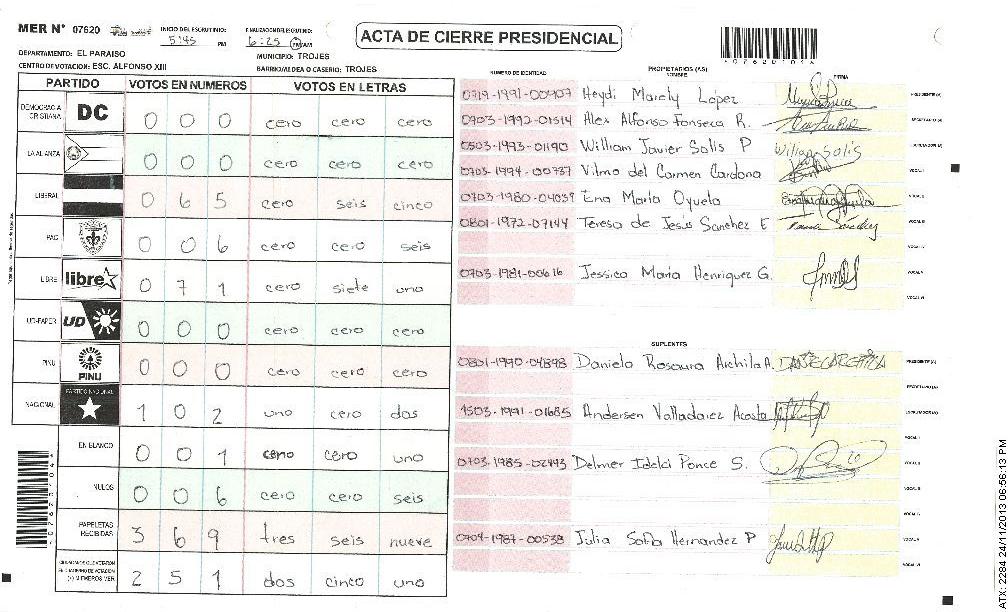 MER N° 07620
INICIO DEL ESCRUTINIO: 5:45 PM
FINALIZACION DEL ESCRUTINIO: 6:25 PM AM
ACTA DE CIERRE PRESIDENCIAL
DEPARTAMENTO: EL PARAISO
MUNICIPIO: TROJES
CENTRO DE VOTACION: ESC. ALFONSO XIII
BARRIO/ALDEA O CASERIO: TROJES
PARTIDO VOTOS EN NUMEROS VOTOS EN LETRAS
DEMOCRACIA CRISTIANA DC 0 0 0 cero cero cero
LA ALIANZA 0 0 0 cero cero cero
LIBERAL 0 6 5 cero seis cinco
PAC 0 0 6 cero cero seis
LIBRE libre 0 7 1 cero siete uno
UD-FAPER UD 0 0 0 cero cero cero
PINU PINU 0 0 0 cero cero cero
NACIONAL PARTIDO NACIONAL 1 0 2 uno cero dos
EN BLANCO 0 0 1 cero cero uno
NULOS 0 0 6 cero cero seis
PAPELETAS RECIBIDAS 3 6 9 tres seis nueve
2 5 1 dos cinco uno
NUMERO DE IDENTIDAD PROPIETARIOS (AS) NOMBRE FIRMA
0719-1991-00907 Heydi Marely López PRESIDENTE (A)
0703-1992-01514 Alex Alfonso Fonseca R. SECRETARIO (A)
0503-1993-01190 William Javier Solis P William Solis ESCRUTADOR (A)
0703-1994-00737 Vilma del Carmen Cardona VOCAL I
0703-1980-04039 Ena Maria Oyuela VOCAL II
0801-1972-07144 Teresa de Jesús Sanchez E VOCAL III
VOCAL IV
0703-1981-00616 Jessica Maria Henriquez G. VOCAL V
VOCAL VI
SUPLENTES
0801-1990-04898 Daniela Rosaura Archila A. PRESIDENTE (A)
SECRETARIO (A)
1503-1991-01685 Andersen Valladarez Acosta ESCRUTADOR (A)
VOCAL I
0703-1985-02443 Delmer Idelci Ponce S. VOCAL II
VOCAL III
VOCAL IV
0704-1987-00538 Julia Sofia Hernandez P VOCAL V
VOCAL VI
ATX: 2284 24/11/2013 06:56:13 PM